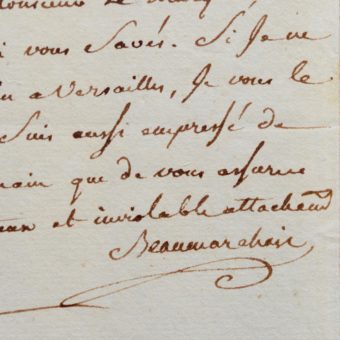 vous Savés. Si Je ne
a Versailles, Je vous le
Suis aussi empressé de
que de vous assurer
et inviolable attachemt
Beaumarchais